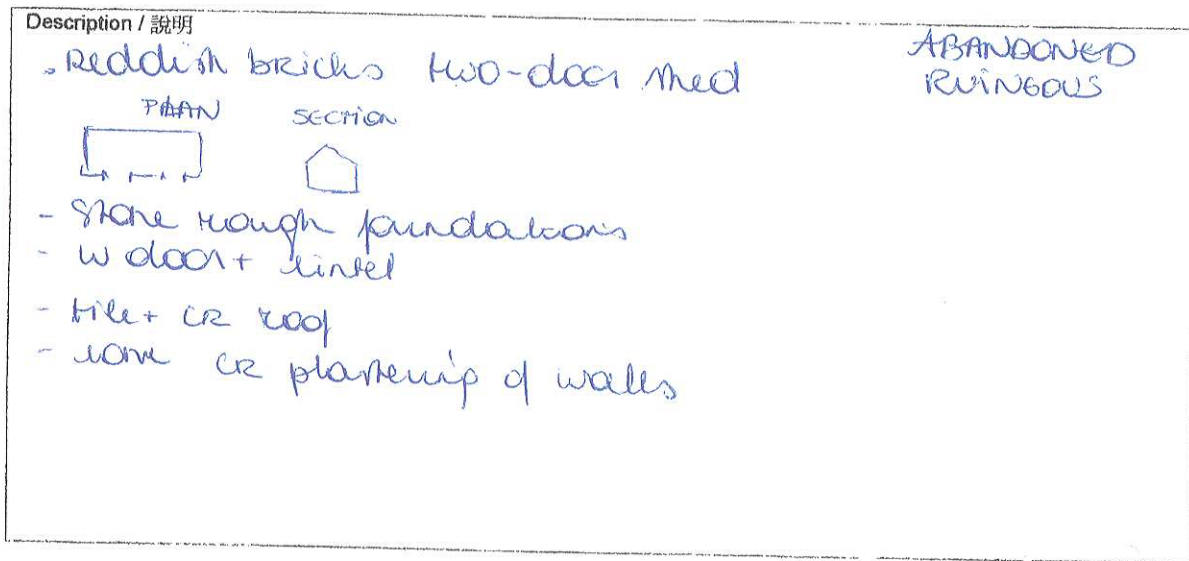 Description / 說明
. Reddish bricks two-door shed
ABANDONED
RUINGOUS
PLAN SECTION
- Stone rough foundations
- W door + lintel
- tile + CR roof
- some CR plastering of walls